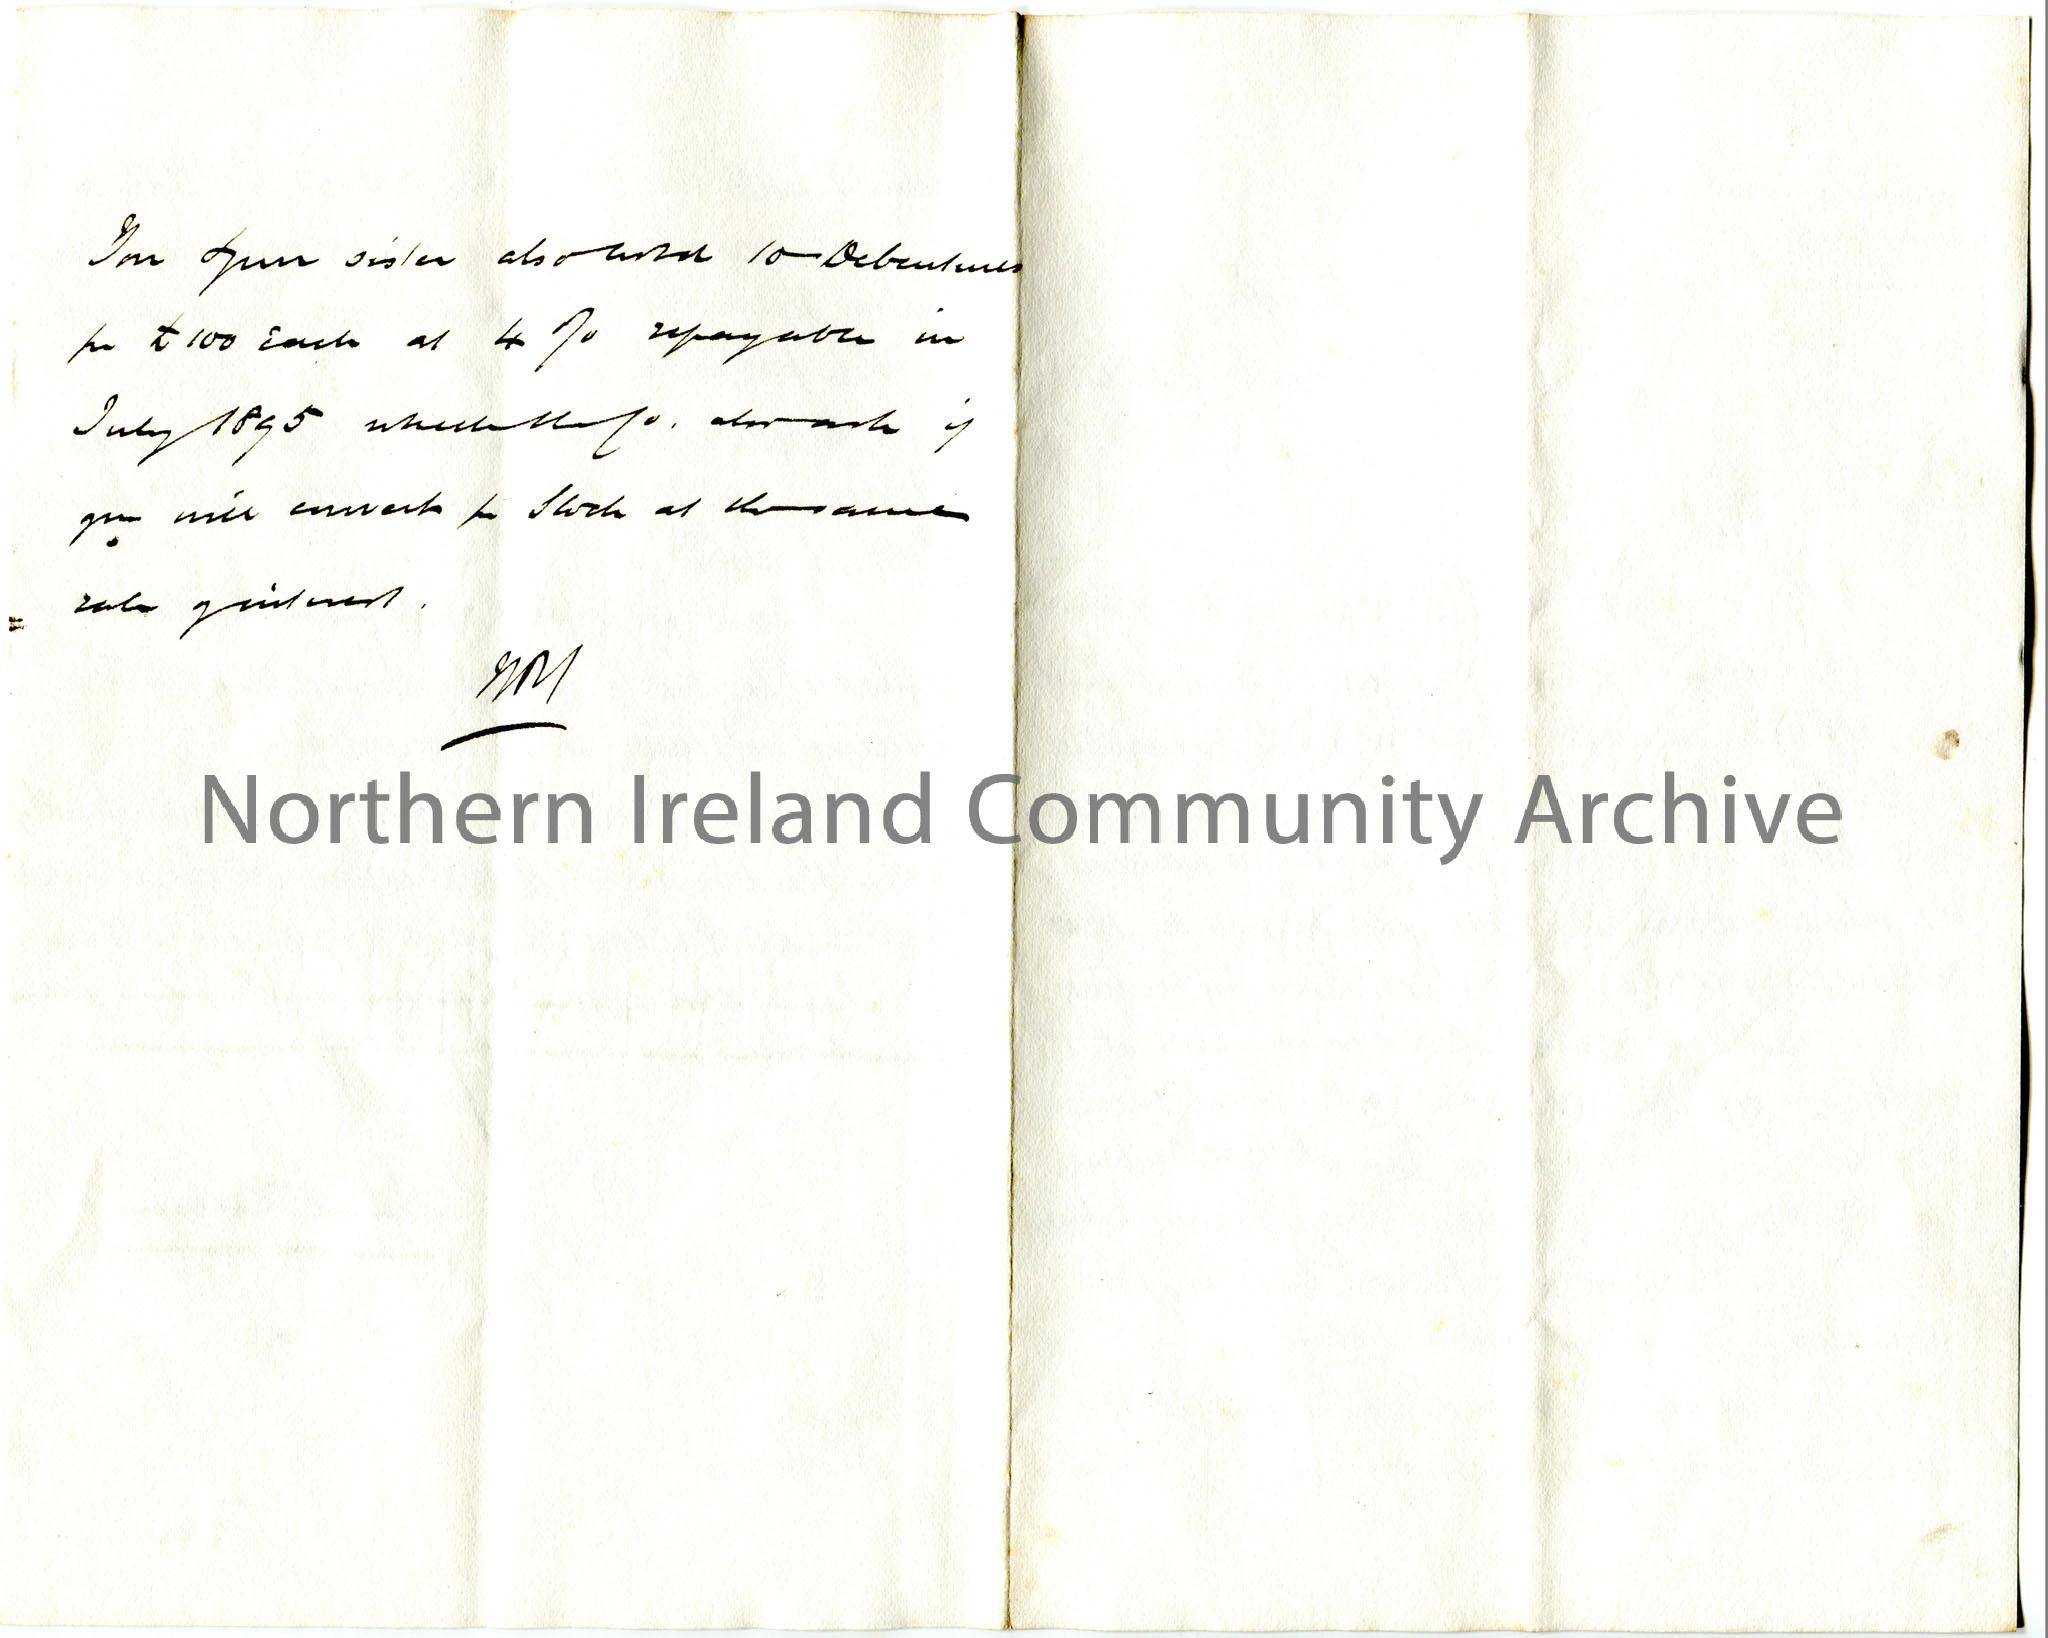 You & your sister also hold 10 Debentures
for £100 Each at 4 % repayable in
July 1895 which the Co. also ask if
you will convert for Stock at the same
rate of interest.
Northern Ireland Community Archive